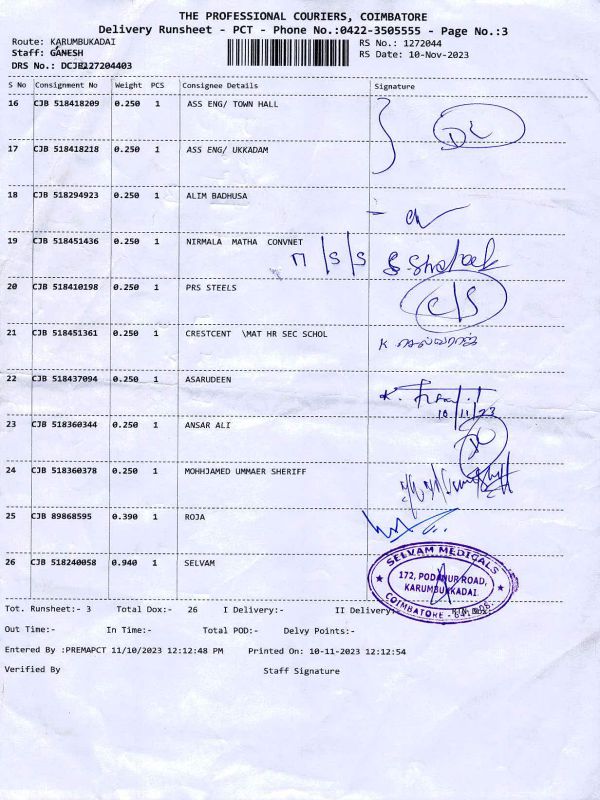 THE PROFESSIONAL COURIERS, COIMBATORE
Delivery Runsheet - PCT - Phone No.:0422-3505555 - Page No.:3
Route: KARUMBUKADAI RS No.: 1272044
Staff: GANESH RS Date: 10-Nov-2023
DRS No.: DCJB227204403
S No Consignment No Weight PCS Consignee Details Signature
16 CJB 518418209 0.250 1 ASS ENG/ TOWN HALL
17 CJB 518418218 0.250 1 ASS ENG/ UKKADAM
18 CJB 518294923 0.250 1 ALIM BADHUSA
19 CJB 518451436 0.250 1 NIRMALA MATHA CONVNET
20 CJB 518410198 0.250 1 PRS STEELS
21 CJB 518451361 0.250 1 CRESTCENT \MAT HR SEC SCHOL
22 CJB 518437094 0.250 1 ASARUDEEN
10/11/23
23 CJB 518360344 0.250 1 ANSAR ALI
24 CJB 518360378 0.250 1 MOHHJAMED UMMAER SHERIFF
25 CJB 89868595 0.390 1 ROJA
26 CJB 518240058 0.940 1 SELVAM
SELVAM MEDICALS
172, PODANUR ROAD,
KARUMBUKKADAI.
COIMBATORE
Tot. Runsheet:- 3 Total Dox:- 26 I Delivery:- II Delivery:-
Out Time:- In Time:- Total POD:- Delvy Points:-
Entered By :PREMAPCT 11/10/2023 12:12:48 PM Printed On: 10-11-2023 12:12:54
Verified By Staff Signature